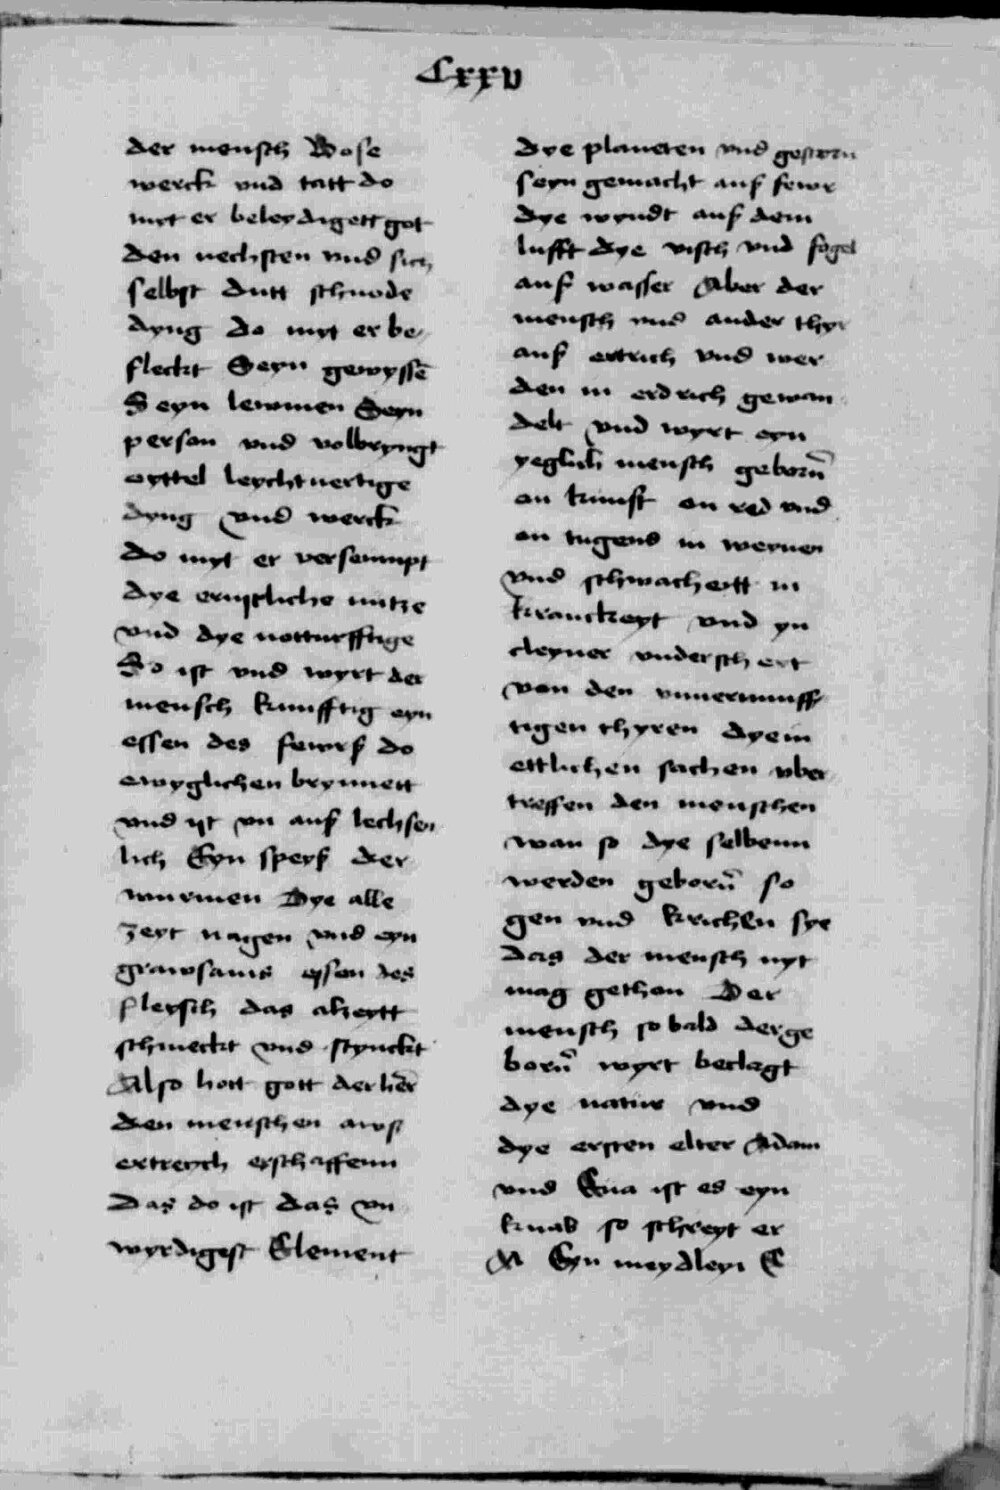 Cxxv
der mensch Bose
werck vnd tatt do
myt er beleydigett got
den nechsten vnd sich
selbst dutt schnode
dyng do myt er be
fleckt Seyn gewyssē
Seyn lewmen Seyn
person vnd volbryngt
eyttel leychtuertige
dyng vnd werck
do myt er versewmpt
dye ernstliche nutze
vnd dye notturfftige
So ist vnd wyrt der
mensch kunfftig eyn
essen des fewrs do
ewyglichen brynnett
vnd ist vn aus lechsen
lich Eyn speys der
wurmen Dye alle
zeyt nagen vnd eyn
grawsams essen des
fleysch das alzeytt
schmeckt vnd stynckt
Also hott gott der her
den menschen aws
ertreych erschaffenn
Das do ist das vn
wyrdigest Element
dye planeten vnd gestern
seyn gemacht aus fewr
dye wyndt aus dem
lufft dye visch vnd fogel
aus wasser Aber der
mensch vnd ander thyr
aus ertrich vnd wer
den in erdrich gewan
delt vnd wyrt eyn
yeglich mensch geborn̄
on kunst on red vnd
on tugend in weynen
vnd schwacheytt in
kranckeyt vnd yn
cleyner vnderscheyt
von den vnuernunff
tigen thyren dye in
ettlichen sachen vber
treffen den menschen
wan so dye selbenn
werden geborn̄ so
gen vnd krichen sye
das der mensch nyt
mag gethon Der
mensch so bald der ge
born̄ wyrt beclagt
dye natur vnd
dye ersten elter Adam
vnd Eua ist es eyn
knab so schreyt er
A Eyn meydleyn E